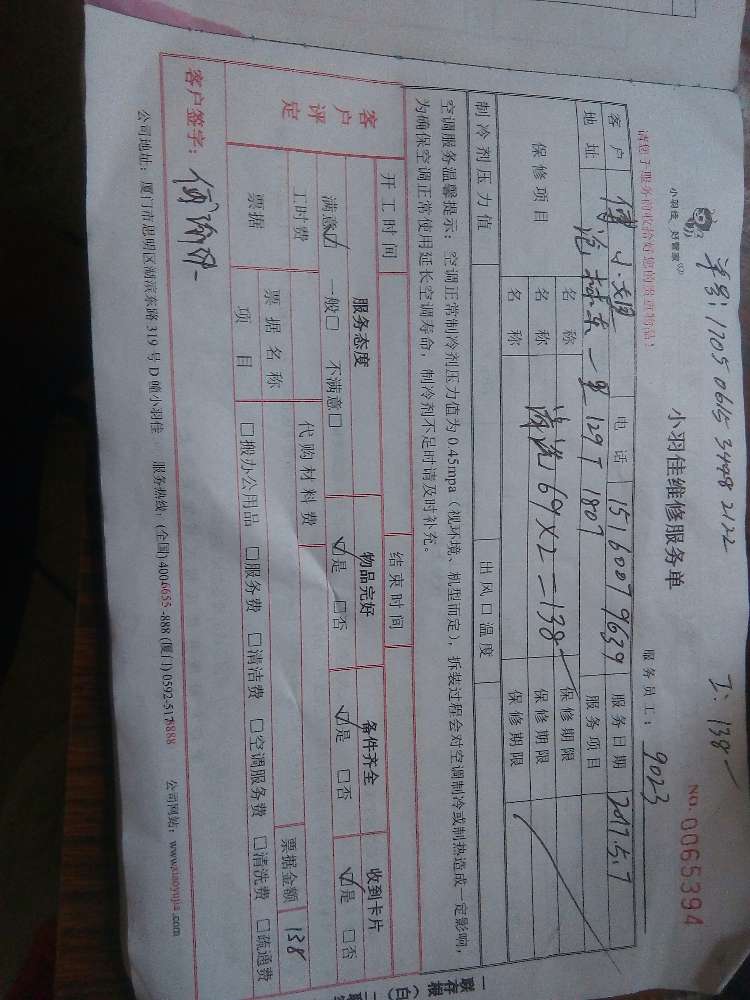 单号:1705 0615 3498 2122
工: 138-
小羽佳 好管家
小羽佳维修服务单
NO. 0065394
请您于服务前收拾好您的贵重物品!
服务员工: 9023
客户 傅小姐 电话 15160079639 服务日期 2017.5.7
地址 东一里129号1807 服务项目
保修项目 名称 保修期限
名称 清洗 69×2=138- 保修期限
名称 保修期限
制冷剂压力值 出风口温度
空调服务温馨提示:空调正常制冷剂压力值为0.45mpa(视环境、机型而定),拆装过程会对空调制冷或制热造成一定影响,
为确保空调正常使用延长空调寿命,制冷剂不足时请及时补充。
开工时间 结束时间
客户评定 服务态度 物品完好 备件齐全 收到卡片
满意☑ 一般□ 不满意□ ☑是 □否 ☑是 □否 ☑是 □否
工时费 代购材料费 票据金额 138
票据 票据名称
项目 □搬办公用品 □服务费 □清洁费 □空调服务费 □清洗费 □疏通费
客户签字:
公司地址:厦门市思明区湖滨东路319号D幢小羽佳 服务热线:(全国)4006655-888 (厦门)0592-5178888 公司网站:www.xiaoyujia.com